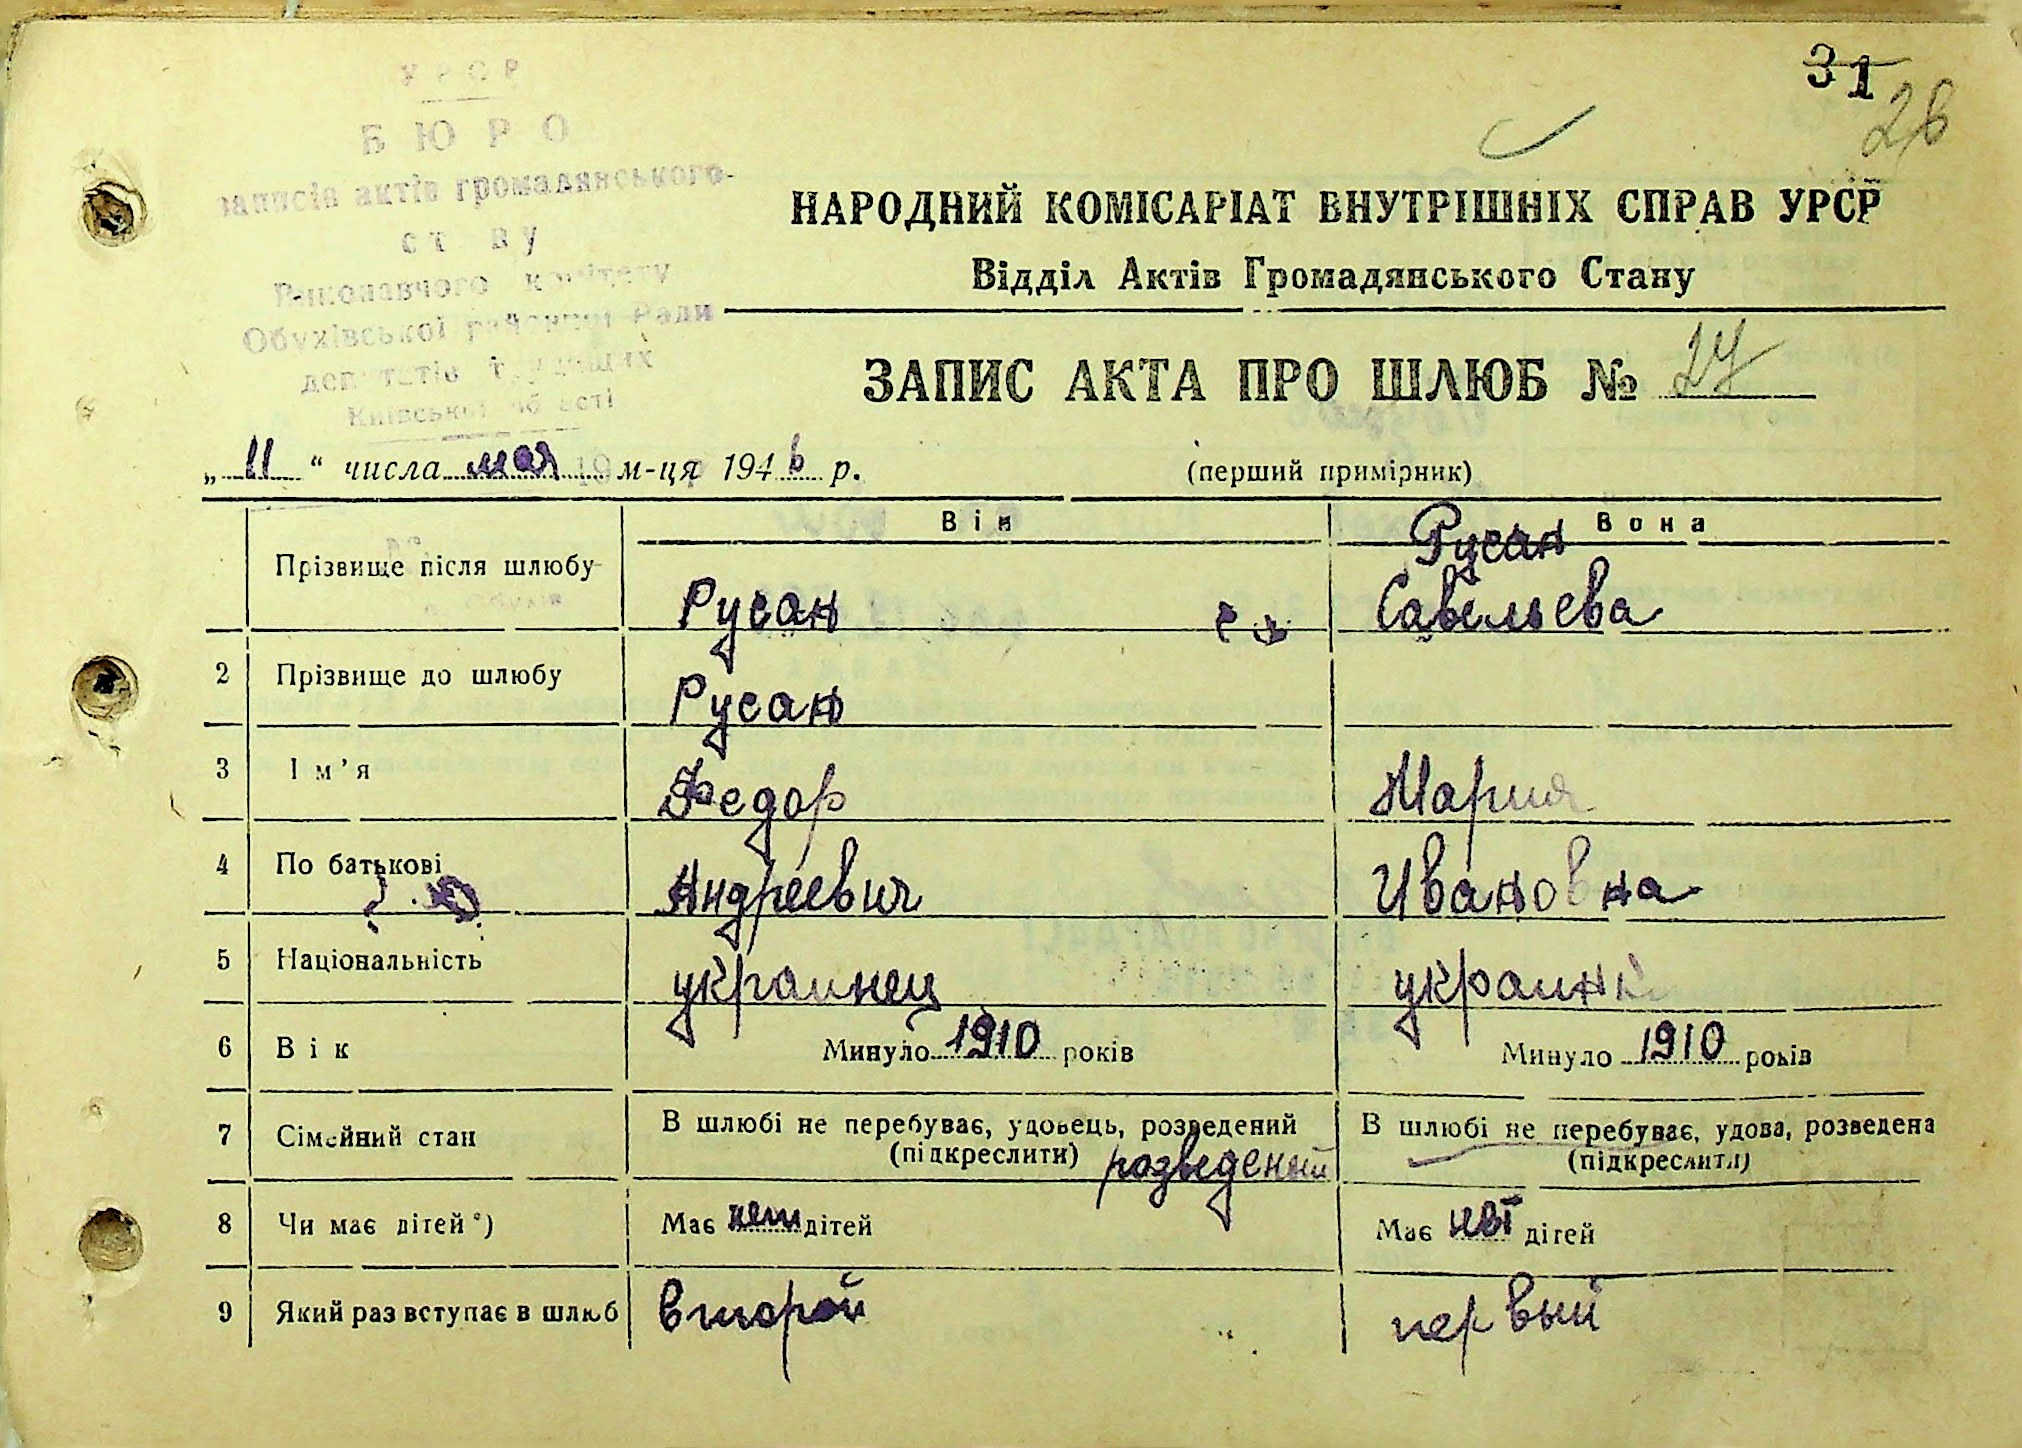 31
28
УРСР
БЮРО
записів актів громадянського
стану
Виконавчого комітету
Обухівської районної Ради
депутатів трудящих
Київської області
НАРОДНИЙ КОМІСАРІАТ ВНУТРІШНІХ СПРАВ УРСР
Відділ Актів Громадянського Стану
ЗАПИС АКТА ПРО ШЛЮБ № 27
„11“ числа мая м-ця 1946 р.
(перший примірник)
Він
Вона
Прізвище після шлюбу
Русан
Русан
Савельева
2 Прізвище до шлюбу
Русан
3 Ім’я
Федор
Мария
4 По батькові
Андреевич
Ивановна
5 Національність
украинец
украинк
6 Вік
Минуло 1910 років
Минуло 1910 років
7 Сімейний стан
В шлюбі не перебуває, удовець, розведений
(підкреслити) розведеный
В шлюбі не перебуває, удова, розведена
(підкреслити)
8 Чи має дітей*)
Має нет дітей
Має нет дітей
9 Який раз вступає в шлюб
второй
первый